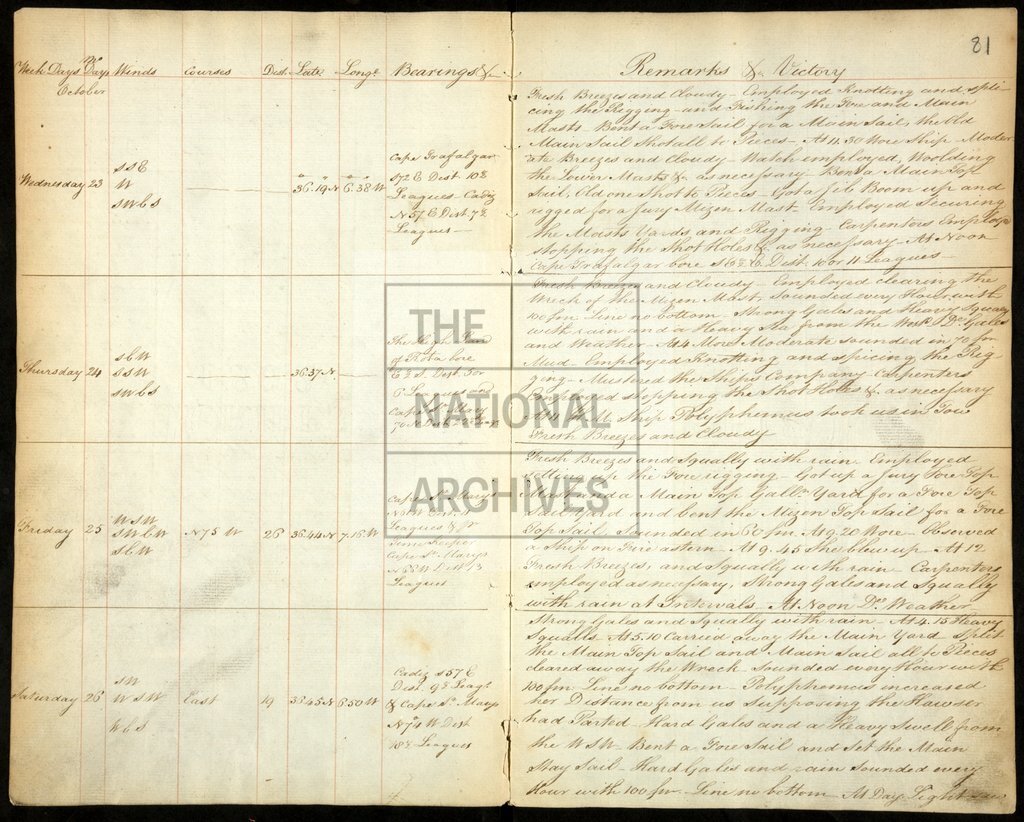 81
Week Days
Days
Winds
Courses
Dist.
Late
Longe
Bearings &c
Remarks &c Victory
October
Wednesday 23
SSE
W
SWbS
36.19 N
6.38 W
Cape Trafalgar
S72E Dist. 10½
Leagues Cadiz
N57E Dist. 7½
Leagues
Fresh Breezes and Cloudy - Employed Knotting and spli-
cing the Rigging - and Fishing the Fore and Main
Masts. Bent a Fore Sail for a Main Sail, the Old
Main Sail Shot all to Pieces - At 4.30 Wore Ship - Moder-
ate Breezes and Cloudy - Watch employed, Woolding
the Lower Masts & as necessary. Bent a Main Top
Sail, Old one Shot to Pieces - Got a Jib Boom up and
rigged for a Jury Mizen Mast - Employed Securing
the Masts Yards and Rigging - Carpenters Employ'd
stopping the Shot Holes & as necessary. At Noon
Cape Trafalgar bore Dist. 10 or 11 Leagues
Thursday 24
SbW
SSW
SWbS
36.37 N
The High Land
of Rota bore
Dist. 5 or
6 Leagues and
Cape St. Mary
Fresh Breezes and Cloudy - Employed clearing the
Wreck of the Mizen Mast, Sounded every Hour with
100 fm. Line no bottom - Strong Gales and Heavy Squalls
with rain and a Heavy Sea from the Do. Gales
and Weather - At 4 More Moderate sounded in 70 fm
Mud - Employed Knotting and splicing the Rig-
ging - Mustered the Ships Company - Carpenters
Employed stopping the Shot Holes & as necessary
Ship Polyphemus took us in Tow
Fresh Breezes and Cloudy
Friday 25
WSW
SWbW
SbW
N75 W
26
36.44 N
7.16 W
Cape St. Mary's
Leagues & Pr
Time Keeper
Cape St. Marys
N68W Dist 13
Leagues
Fresh Breezes and Squally with rain Employed
setting up the Fore rigging - Got up a Jury Fore Top
Mast and a Main Top Gallt. Yard for a Fore Top
Sail Yard and bent the Mizen Top Sail for a Fore
Top Sail, Sounded in 60 fm. At 9.20 Wore - Observed
a Ship on Fire astern - At 9.45 She blew up - At 12
Fresh Breezes, and Squally with rain - Carpenters
employed as necessary, Strong Gales and Squally
with rain at Intervals - At Noon Do. Weather
Saturday 26
SW
WSW
WbS
East
19
36.45 N
6.50 W
Cadiz S57E
Dist. 9½ Leags
& Cape St. Marys
N74W Dist
18½ Leagues
Strong Gales and Squally with rain - At 4.15 Heavy
Squalls. At 5.10 Carried away the Main Yard Split
the Main Top Sail and Main Sail all to Pieces
cleared away the Wreck - Sounded every Hour with
100 fm. Line no bottom - Polyphemus increased
her Distance from us Supposing the Hawser
had Parted - Hard Gales and a Heavy Swell from
the WSW - Bent a Fore Sail and Set the Main
Stay Sail - Hard Gales and rain Sounded every
Hour with 100 fm - Line no bottom - At Day Light saw
THE
NATIONAL
ARCHIVES